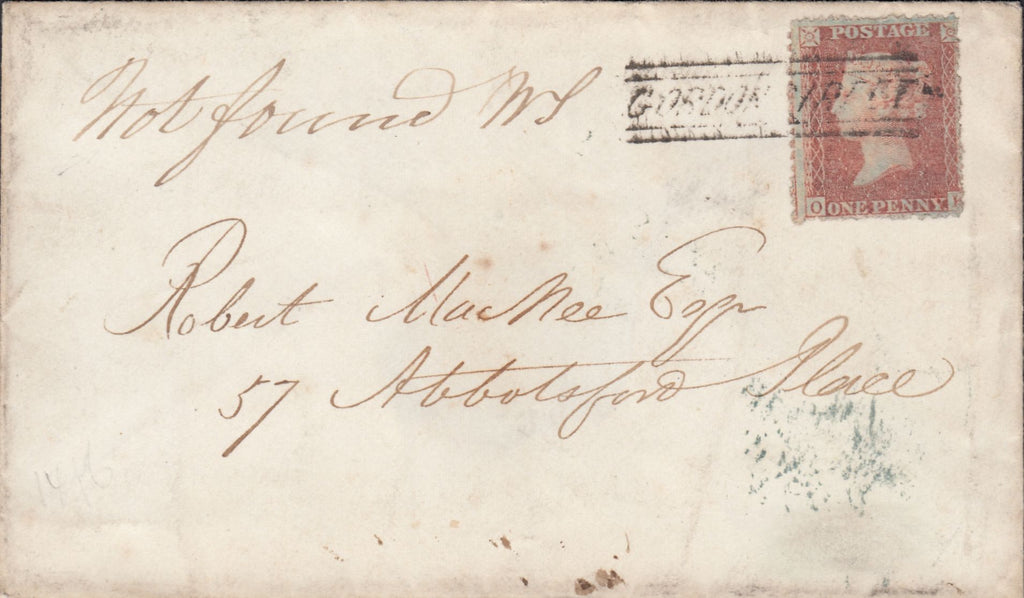 POSTAGE
GORDON STREET
Not found WS
O ONE PENNY
Robert MacNee Esqr
57 Abbotsford Place